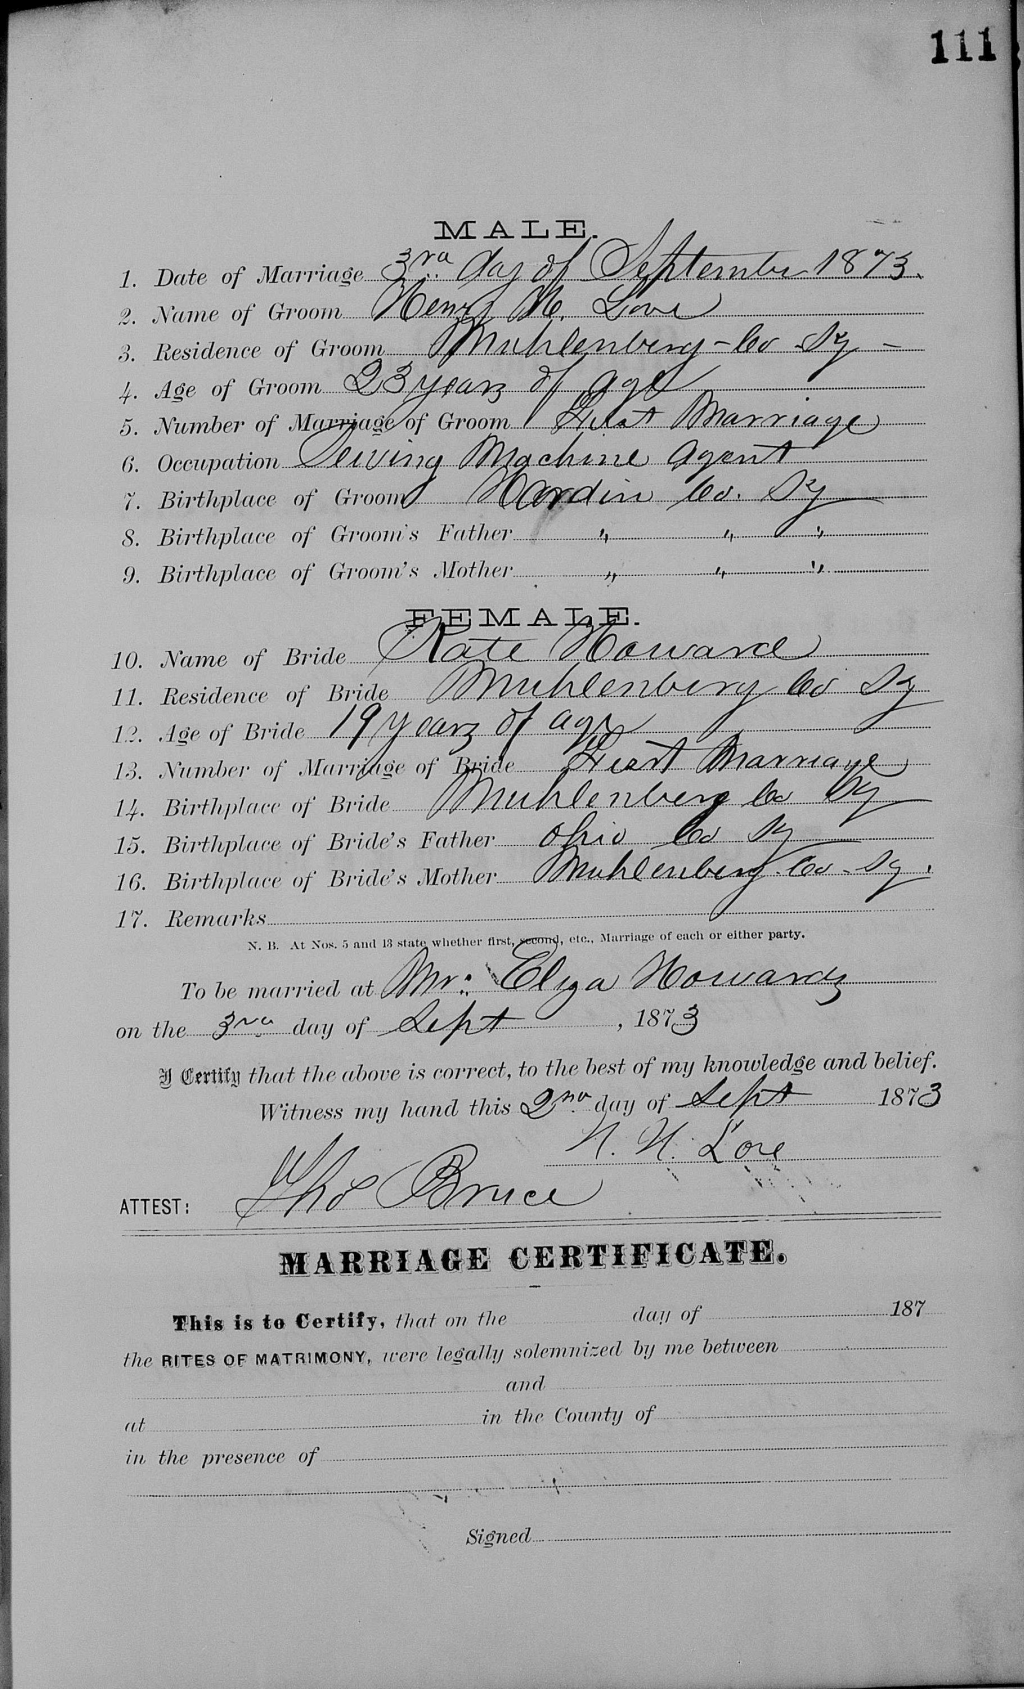 111
MALE.
1. Date of Marriage 3rd day of September 1873.
2. Name of Groom Henry H. Love
3. Residence of Groom Muhlenberg - Co Ky -
4. Age of Groom 23 years of age
5. Number of Marriage of Groom First Marriage
6. Occupation Sewing Machine Agent
7. Birthplace of Groom Hardin Co. Ky
8. Birthplace of Groom's Father " " "
9. Birthplace of Groom's Mother " " "
FEMALE.
10. Name of Bride Kate Howard
11. Residence of Bride Muhlenberg Co Ky
12. Age of Bride 19 years of age
13. Number of Marriage of Bride First Marriage
14. Birthplace of Bride Muhlenberg Co Ky
15. Birthplace of Bride's Father Ohio Co Ky
16. Birthplace of Bride's Mother Muhlenberg - Co - Ky.
17. Remarks
N. B. At Nos. 5 and 13 state whether first, second, etc., Marriage of each or either party.
To be married at Mrs Eliza Howards
on the 3rd day of Sept , 1873
I Certify that the above is correct, to the best of my knowledge and belief.
Witness my hand this 2nd day of Sept 1873
H. H. Love
ATTEST: Tho Bruce
MARRIAGE CERTIFICATE.
This is to Certify, that on the day of 187
the RITES OF MATRIMONY, were legally solemnized by me between
and
at in the County of
in the presence of
Signed